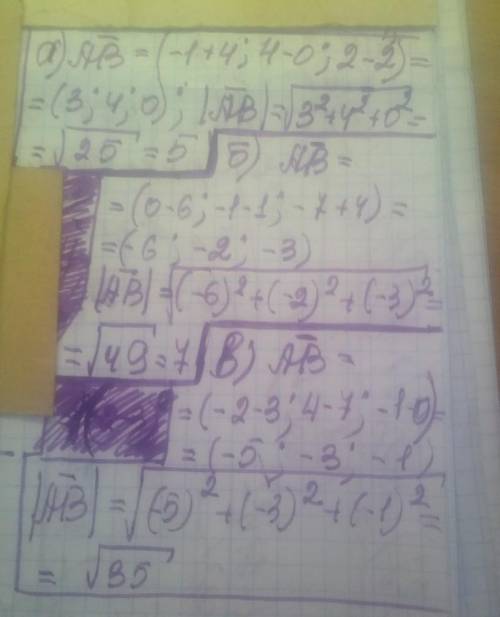 а) AB = (-1+4; 4-0; 2-2) =
= (3; 4; 0); |AB| = √3²+4²+0² =
= √25 = 5 б) AB =
= (0-6; -1-1; -7+4) =
= (-6; -2; -3)
|AB| = √(-6)²+(-2)²+(-3)² =
= √49 = 7 в) AB =
= (-2-3; 4-7; -1-0) =
= (-5; -3; -1)
|AB| = √(-5)²+(-3)²+(-1)² =
= √35